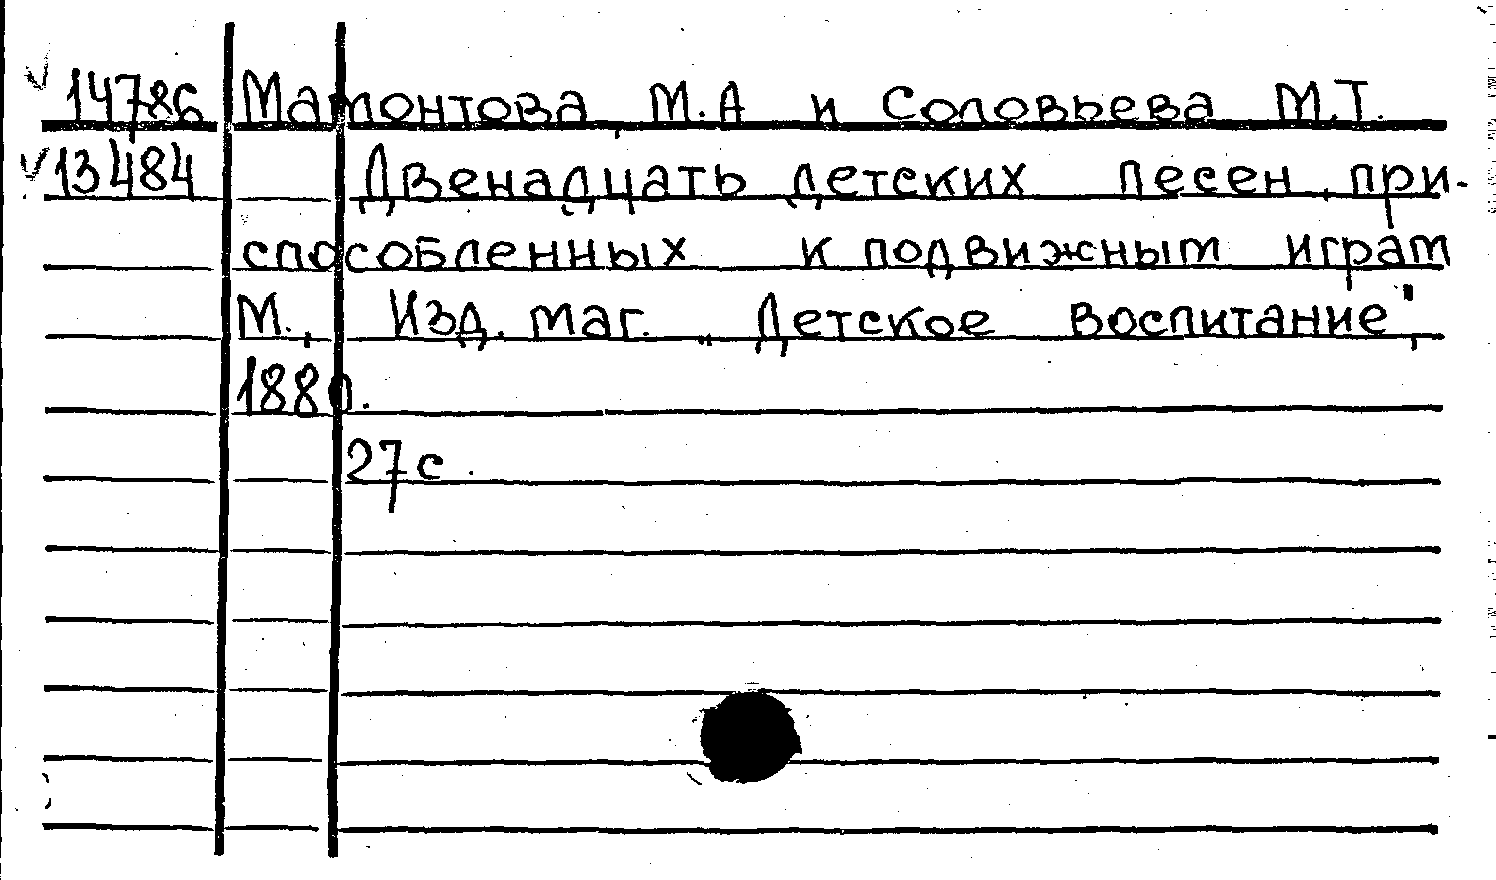 ✓ 14786 Мамонтова, М.А и Соловьева М.Т.
✓ 13484 Двенадцать детских песен, при-
способленных к подвижным играм
М., Изд. маг. „Детское воспитание",
1880.
27 с.